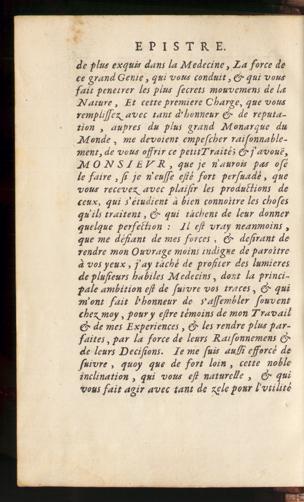 EPISTRE.
de plus exquis dans la Medecine, La force de
ce grand Genie, qui vous conduit, & qui vous
fait penetrer les plus secrets mouvemens de la
Nature, Et cette premiere Charge, que vous
remplissez avec tant d'honneur & de reputa-
tion, aupres du plus grand Monarque du
Monde, me devoient empescher raisonnable-
ment, de vous offrir ce petit Traité & j'avouë,
MONSIEVR, que je n'aurois pas osé
le faire, si je n'eusse esté fort persuadé, que
vous recevez avec plaisir les productions de
ceux, qui s'étudient à bien connoître les choses
qu'ils traitent, & qui tâchent de leur donner
quelque perfection : Il est vray neanmoins,
que me défiant de mes forces, & desirant de
rendre mon Ouvrage moins indigne de paroître
à vos yeux, j'ay tâché de profiter des lumieres
de plusieurs habiles Medecins, dont la princi-
pale ambition est de suivre vos traces, & qui
m'ont fait l'honneur de s'assembler souvent
chez moy, pour y estre témoins de mon Travail
& de mes Experiences, & les rendre plus par-
faites, par la force de leurs Raisonnemens &
de leurs Decisions. Ie me suis aussi efforcé de
suivre, quoy que de fort loin, cette noble
inclination, qui vous est naturelle, & qui
vous fait agir avec tant de zele pour l'vtilité